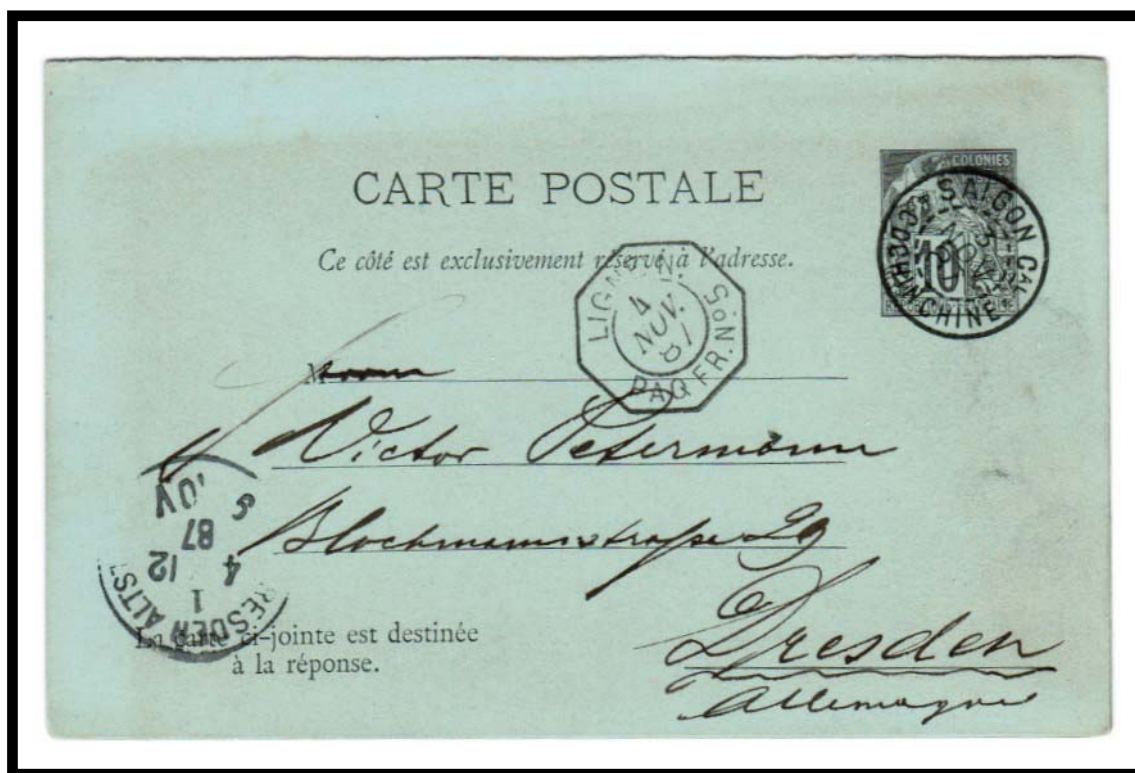 CARTE POSTALE
Ce côté est exclusivement réservé à l'adresse.
COLONIES
10
SAIGON CAL
COCHINCHINE
LIGNE N.
PAQ. FR. No 5
4
NOV.
Victor Petermann
Blochmannstraße 29
Dresden
Allemagne
NOV
87
4 12
1
RESDEN ALTS
La carte ci-jointe est destinée
à la réponse.